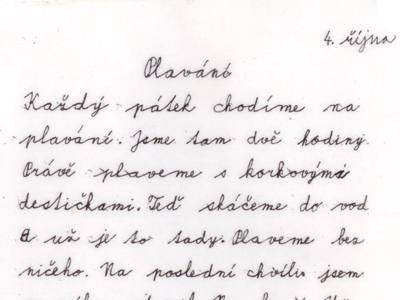 4. října
Plavání
Každý pátek chodíme na
plavání. Jsme tam dvě hodiny.
Právě plaveme s korkovými
destičkami. Teď skáčeme do vod
A už je to tady. Plaveme bez
ničeho. Na poslední chvíli jsem